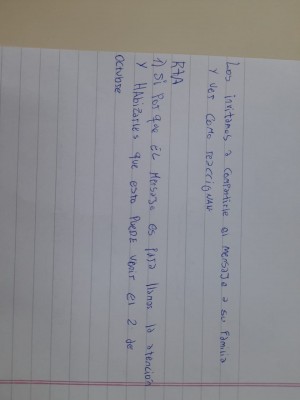 Los invitamos a compartirle el mensaje a su familia
y ver como reaccionan
RTA
1) Si por que el mensaje es para llamar la atención
y Habizarles que esto PUEDE venir el 2 de
octubre